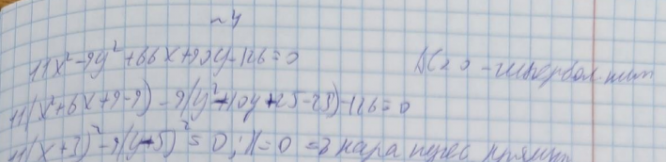 ~4
11x² - 9y² + 66x + 90y - 126 = 0 AC<0 - гипербол. тип
11(x² + 6x + 9 - 9) - 9(y² - 10y + 25 - 25) - 126 = 0
11(x + 3)² - 9(y - 5)² = 0; K = 0 => пара перес прямых